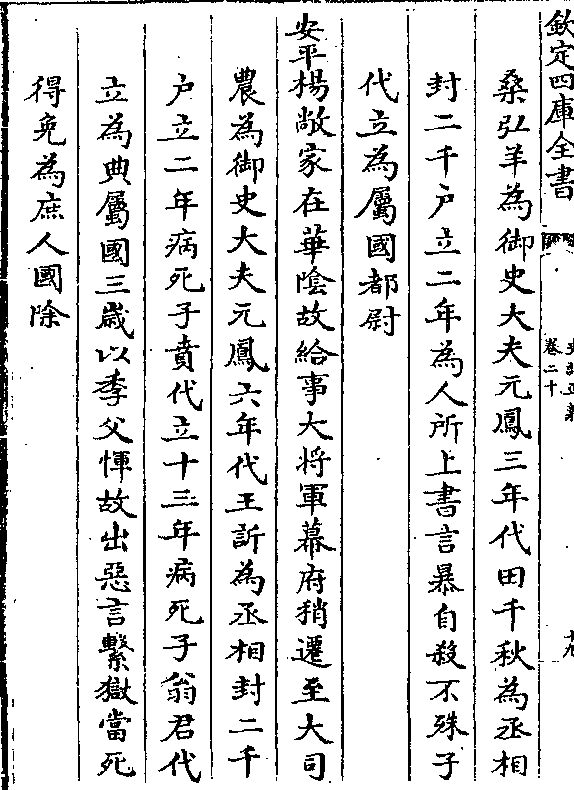 欽定四庫全書
卷二十
桑弘羊為御史大夫元鳳三年代田千秋為丞相
封二千户立二年為人所上書言暴自殺不殊子
代立為屬國都尉
安平楊敞家在華陰故給事大將軍幕府稍遷至大司
農為御史大夫元鳳六年代王訢為丞相封二千
户立二年病死子賁代立十三年病死子翁君代
立為典屬國三歲以季父惲故出惡言繫獄當死
得免為庶人國除